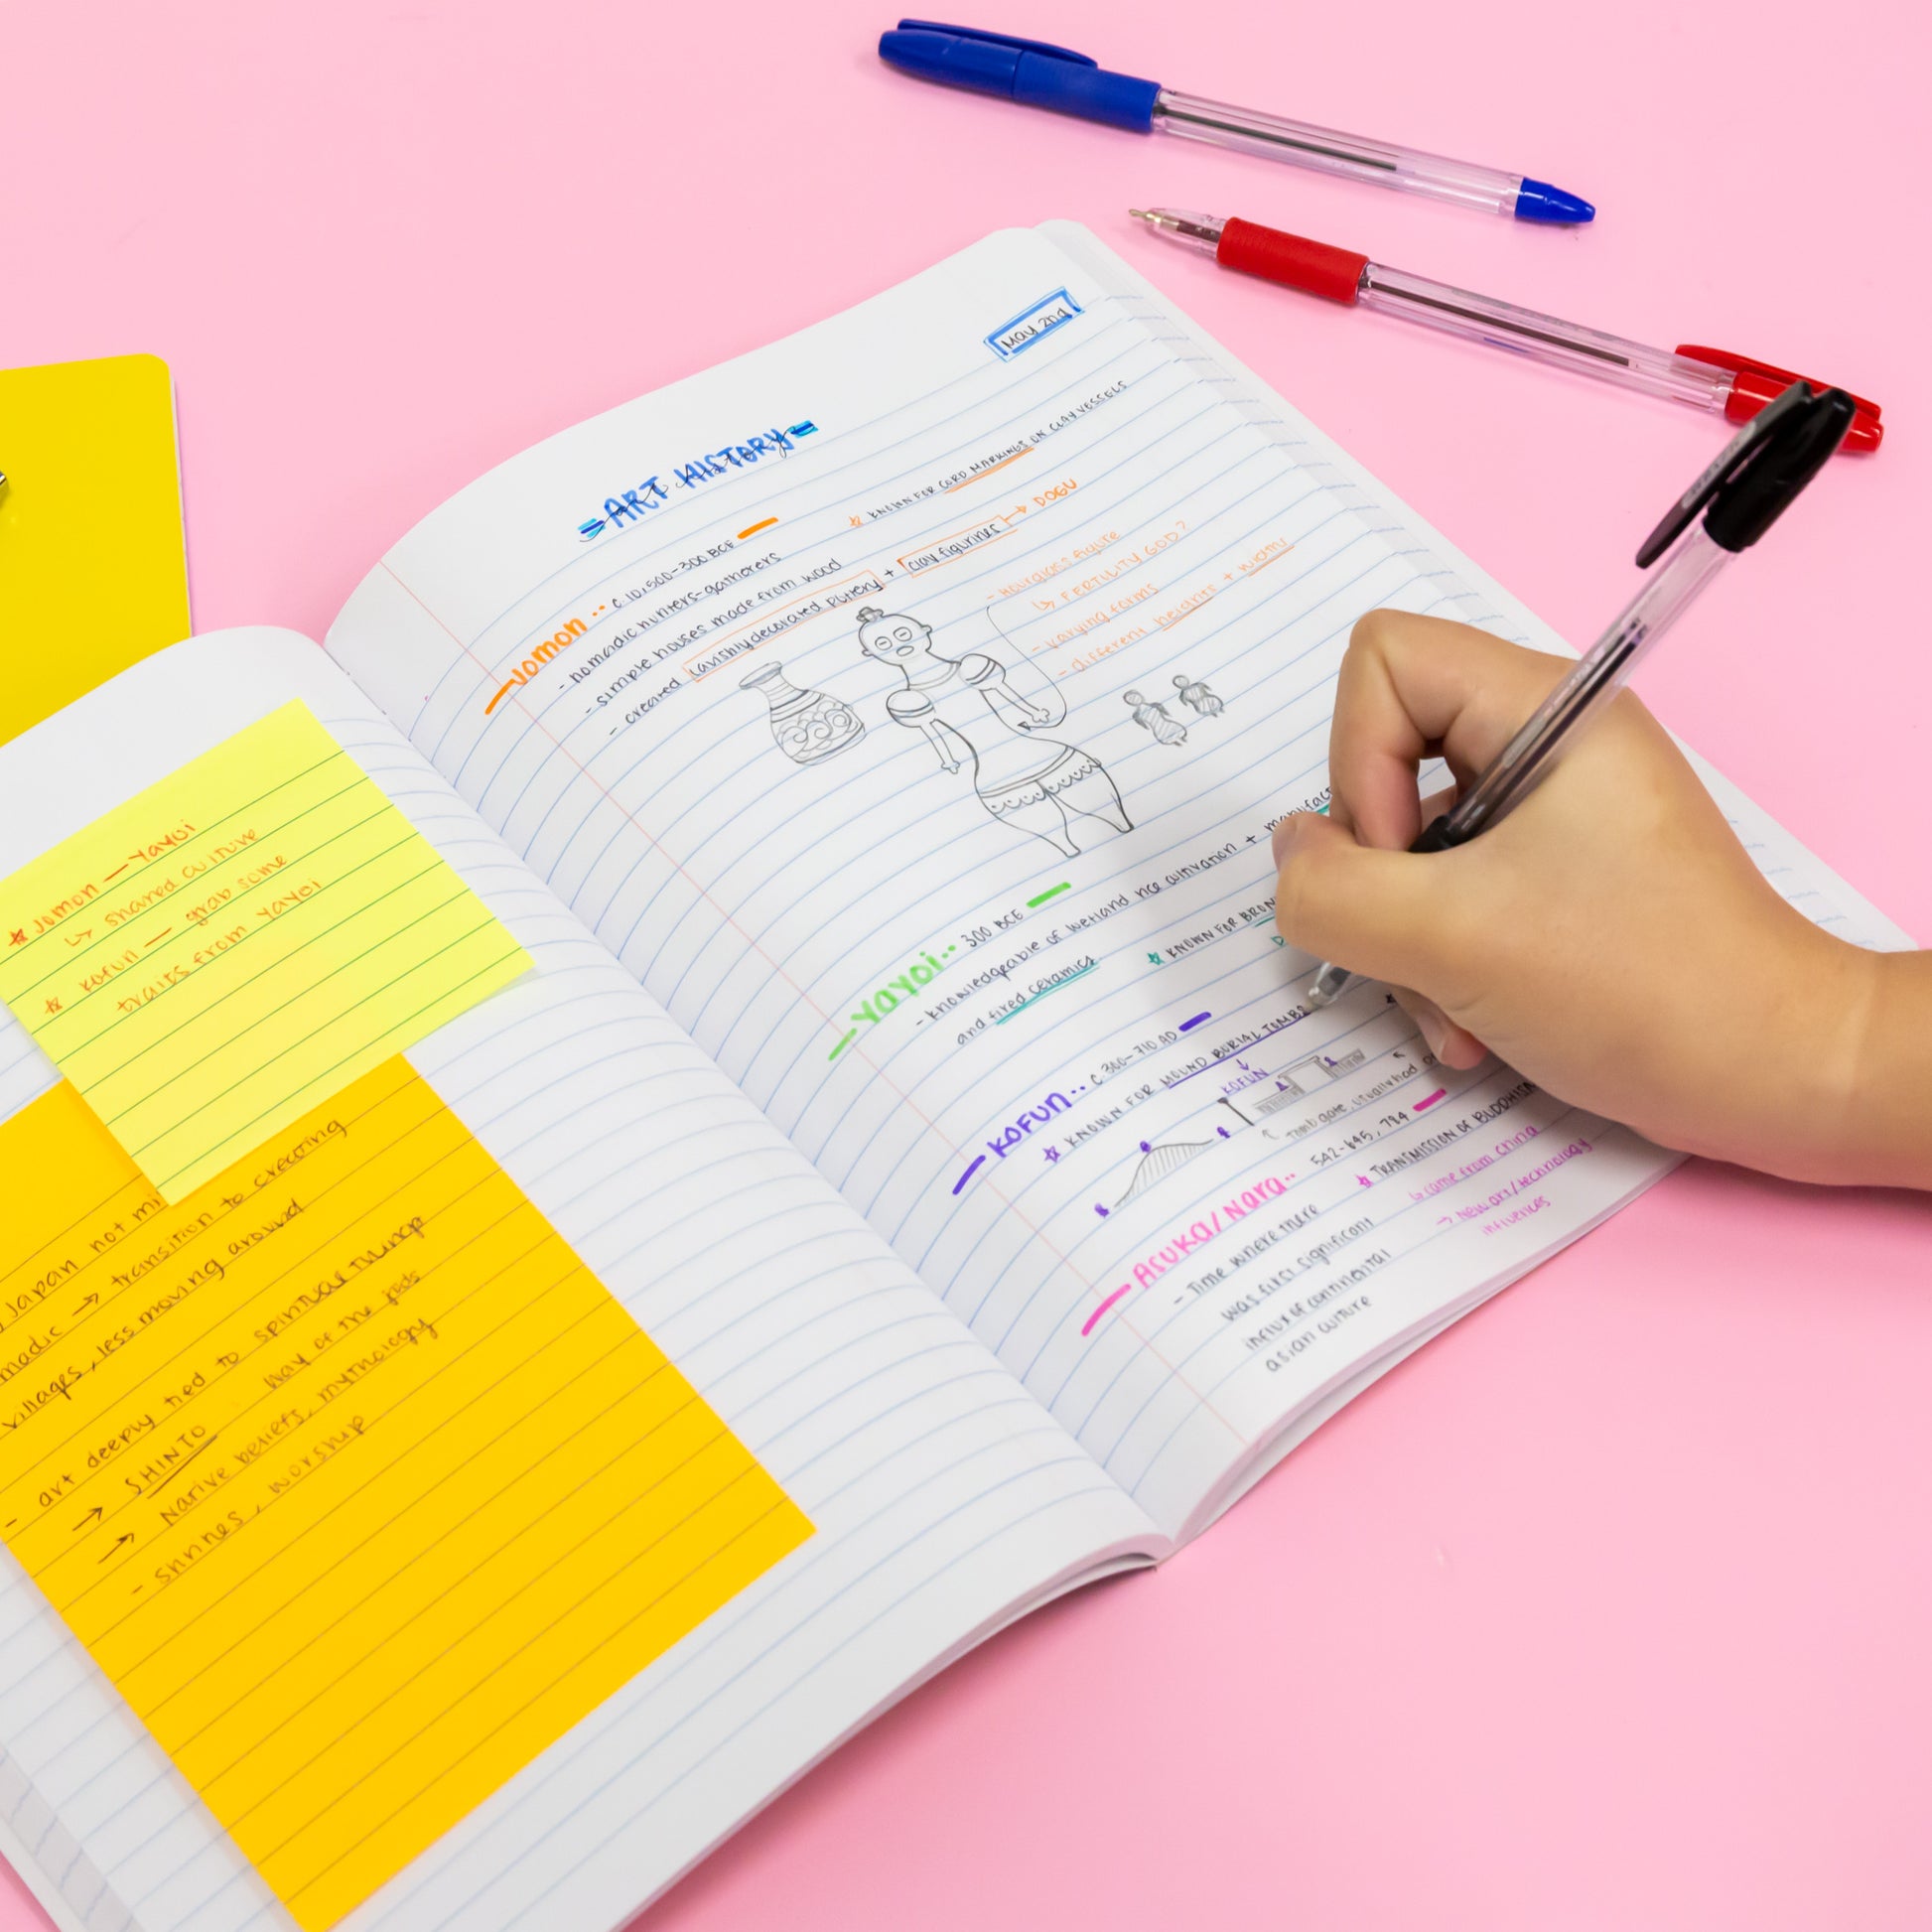 ★ Jomon — Yayoi
↳ shared culture
★ Kofun — grab some
traits from Yayoi
Japan not mi
madic → transition to creating
villages, less moving around
- art deeply tied to spiritual things
→ SHINTO way of the gods
→ Native beliefs, mythology
- shrines, worship
May 2nd
ART HISTORY
art history
Jomon·· c. 10,500-300 BCE
★ KNOWN FOR CORD MARKINGS ON CLAY VESSELS
- nomadic hunters-gatherers
- simple houses made from wood
- created lavishly decorated pottery + clay figurines → DOGU
- hourglass figure
↳ FERTILITY GOD?
- varying forms
- different heights +
Yayoi·· 300 BCE
- knowledgeable of wetland rice cultivation +
and fired ceramics
★ KNOWN FOR BRON
KOFUN·· c. 300-710 AD
★ KNOWN FOR MOUND BURIAL TOMBS
↓
KOFUN
Asuka/Nara·· 542-645, 794
- Time where there
was first significant
influx of continental
asian culture
★ TRANSMISSION OF BUDDHISM
↳ came from china
→ new art/technology
influences